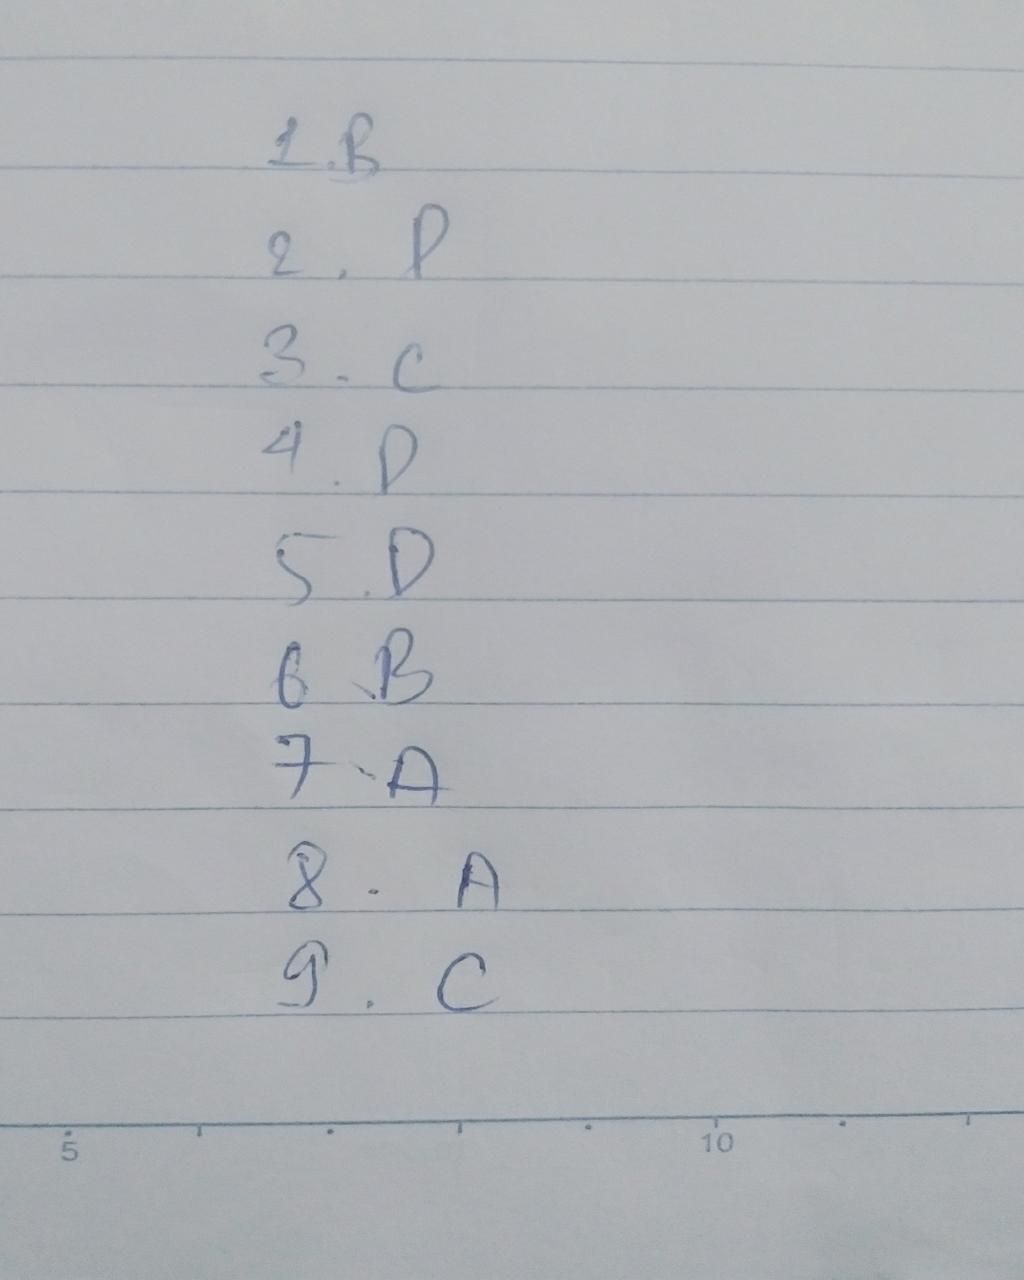 1.B
2. P
3. C
4. D
5. D
6. B
7. A
8. A
9. C
5 10